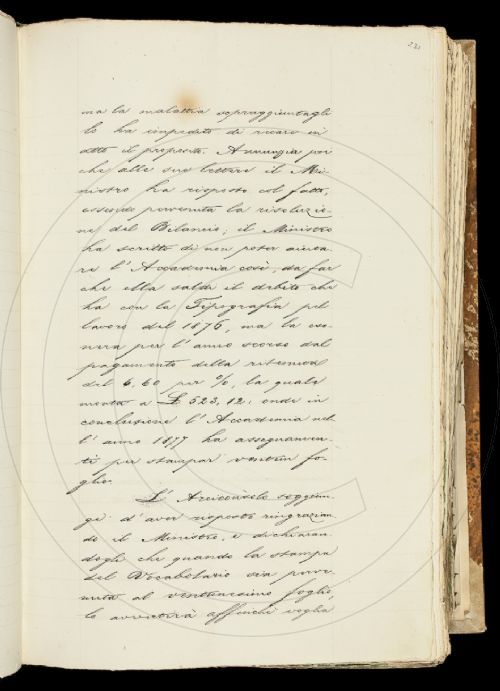 ma la malattia sopraggiuntagli
lo ha impedito di recare in
atto il proposito. Annunzia poi
che alle sue lettere il Mi-
nistro ha risposto col fatto,
essendo pervenuta la risoluzio-
ne del Bilancio; il Ministro
ha scritto di non poter aiuta-
re l'Accademia così, da far
che ella saldi il debito che
ha con la Tipografia pel
lavoro del 1876, ma la eso-
nera per l'anno scorso dal
pagamento della ritenuta
del 6,60 per %, la quale
monta a £ 523,12; onde in
conclusione l'Accademia nel-
l'anno 1877 ha assegnamen-
ti per stampar ventun fo-
glio.
L'Arciconsolo soggiun-
ge d'aver risposto ringrazian-
do il Ministro, e dichiaran-
dogli che quando la stampa
del Vocabolario sia perve-
nuta al ventunesimo foglio,
lo avvertirà affinchè voglia